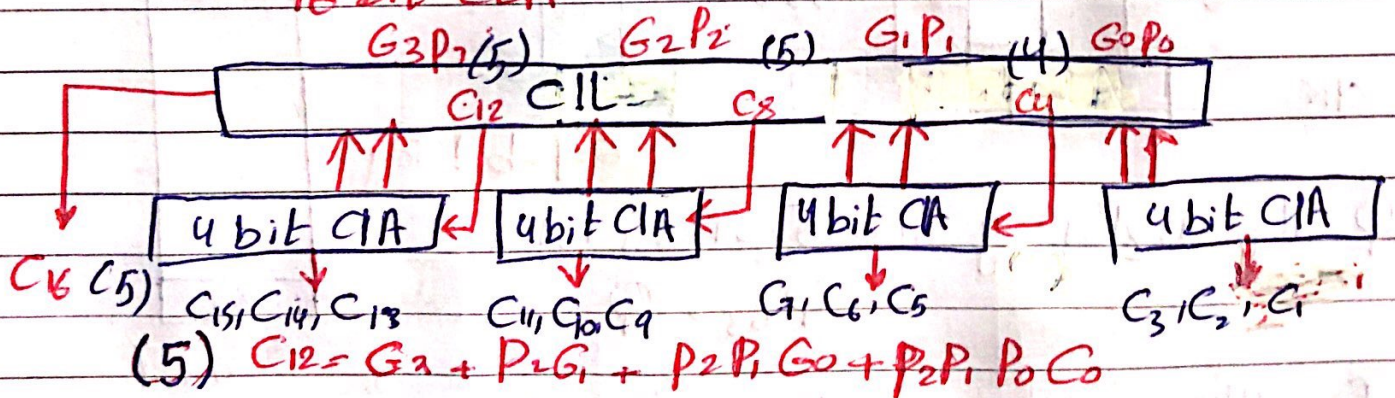 G3P3 (5) G2P2 (5) G1P1 (4) G0P0
C12 CLL C8 C4
4 bit CLA 4 bit CLA 4 bit CLA 4 bit CLA
C16 (5) C15, C14, C13 C11, C10, C9 C7, C6, C5 C3, C2, C1
(5) C12 = G2 + P2G1 + P2P1 G0 + P2P1 P0 C0